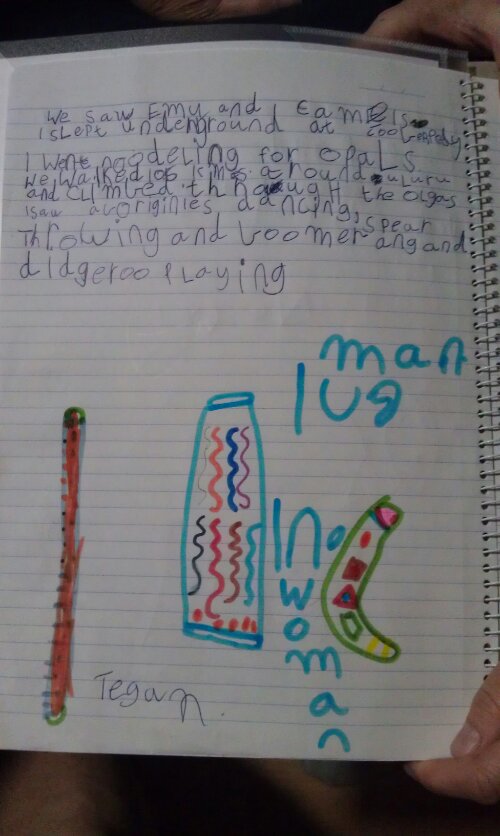 we saw Emu and camels
I slept underground at cooberpedy
I went noodeling for opals
we walked 10 kms around uluru
and climbed through the olgas
I saw aboriginies dancing, spear
Throwing and boomerang and
didgeroo playing
man
lug
no
woman
Tegan